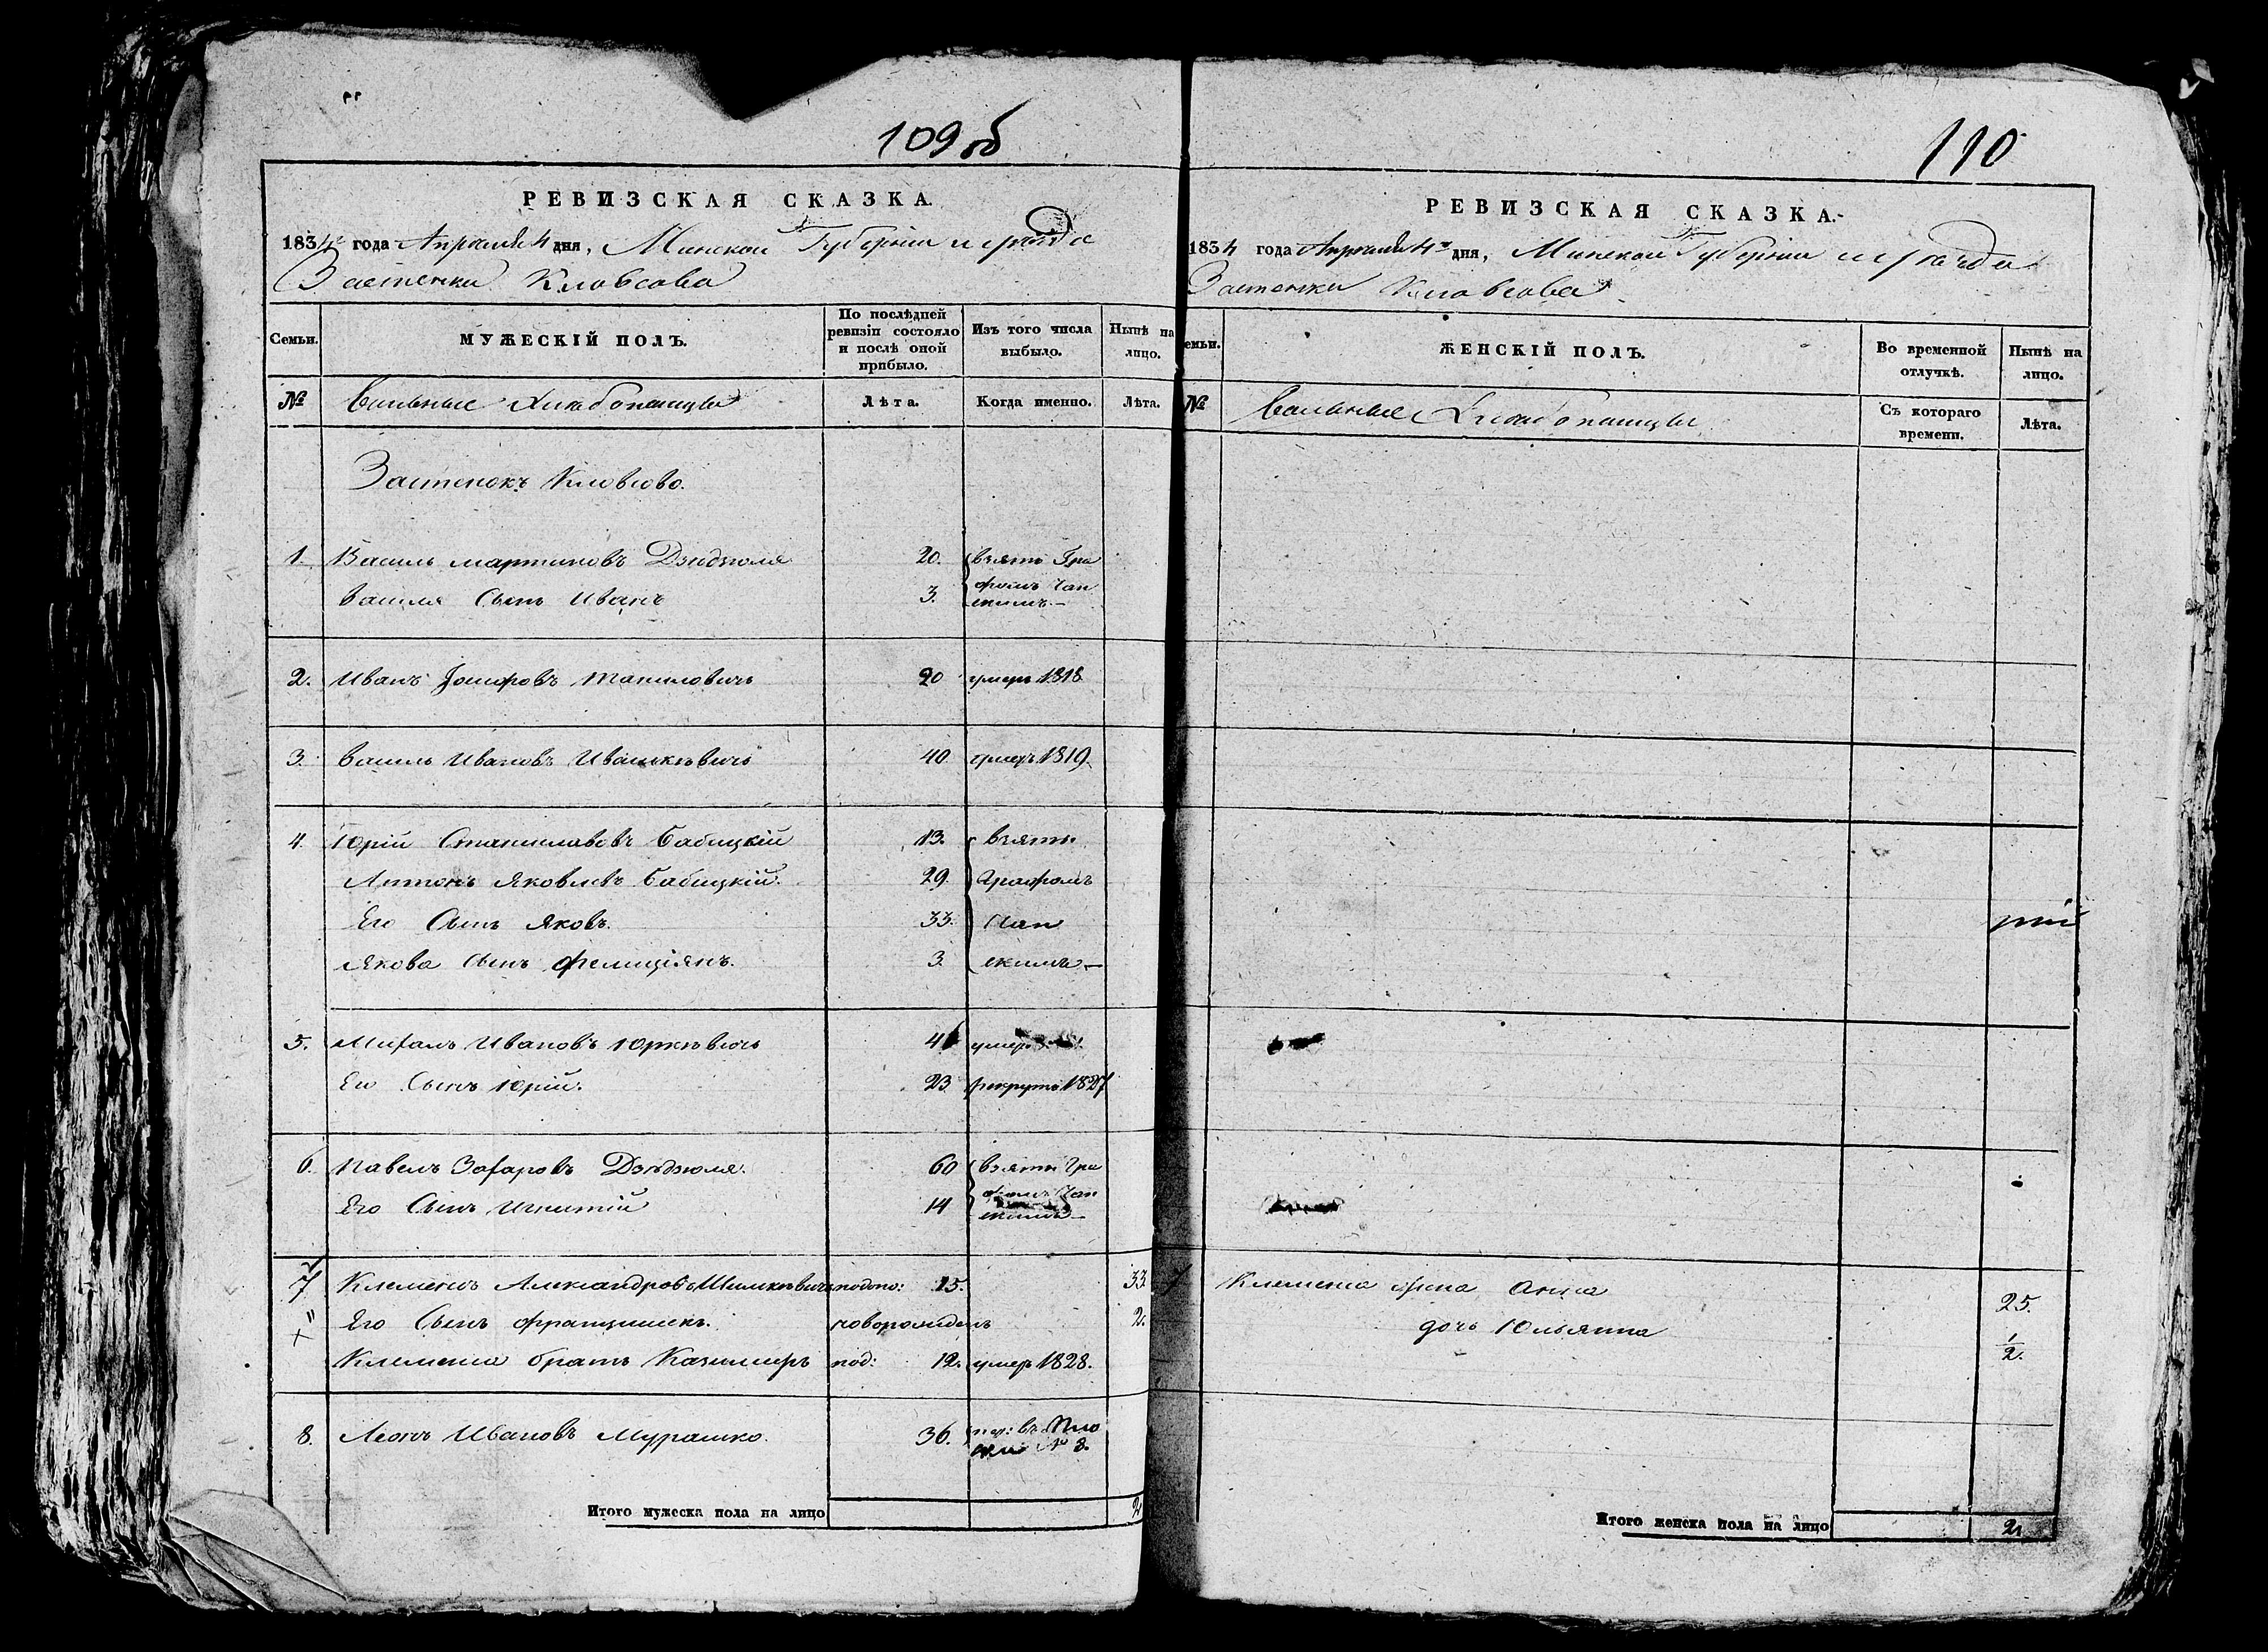 109об
РЕВИЗСКАЯ СКАЗКА.
1834 года Апреля 4 дня, Минской Губерніи и уезда
Застенка Кловсова
Семьи.
МУЖЕСКІЙ ПОЛЪ.
По послѣдней ревизіи состояло и послѣ оной прибыло.
Изъ того числа выбыло.
Нынѣ на лицо.
№
Вольные Хлебопашцы
Лѣта.
Когда именно.
Лѣта.
Застенокъ Кловсово.
1. Василь Мартиновъ Дзюдзюля 20. взяты Гра
Василя Сынъ Иванъ 3. фомъ Чап
скимъ.—
2. Иванъ 20 умеръ 1818
3. Василь Ивановъ Ивашкевичъ 40 умеръ 1819.
4. Юрій Станиславовъ Бабицкій 13. взяты
Антонъ Яковлевъ Бабицкій. 29. Графомъ
Его Сынъ Яковъ. 33. Чап
Якова Сынъ Фелиціянъ. 3. скимъ—
5. Михалъ Ивановъ Юркевичъ умеръ
Его Сынъ Юрій. 23 рекрутъ 1827
6. Павелъ Захаровъ Дзюдзюля. 60 взяты Гра
Его Сынъ Игнатій 14 фомъ Чап
скимъ—
7 Клеменсъ Александровъ Шишкевичъ 15. 33
Его Сынъ Францишекъ. новорожденъ 2.
Клеменса братъ Казимиръ под: 12. умеръ 1828.
8. Леонъ Ивановъ Мурашко. 36. пер: въ
№ 8.
Итого мужеска пола на лицо 2
110
РЕВИЗСКАЯ СКАЗКА.
1834 года Апреля 4 дня, Минской Губерніи и уезда
Застенка Кловсова
Семьи.
ЖЕНСКІЙ ПОЛЪ.
Во временной отлучкѣ.
Нынѣ на лицо.
№
Вольные Хлебопашцы
Съ котораго времени.
Лѣта.
рій
7 Клеменса жена Анна 25.
дочь Юльянна 1/2.
Итого женска пола на лицо 2